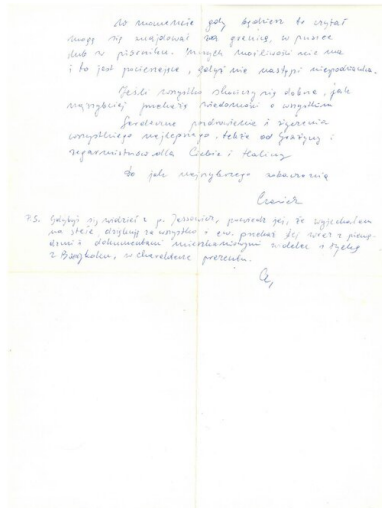 W momencie gdy będziesz to czytał
mogę się znajdować za granicą, w puszce
lub w piórniku. Innych możliwości nie ma
i to jest pocieszające, gdyż nie nastąpi niespodzianka.
Jeśli wszystko skończy się dobrze, jak
najszybciej przekażę wiadomości o wszystkim
Serdeczne pozdrowienia i życzenia
wszystkiego najlepszego, także od Grażyny i
dla Ciebie i Haliny
Do jak najszybszego zobaczenia
P.S. Gdybyś się widział z p. powiedz jej, że wyjechałem
na stałe, dziękuję za wszystko i ew. przekaż jej wraz z
i dokumentami mieszkaniowymi
z w charakterze prezentu.